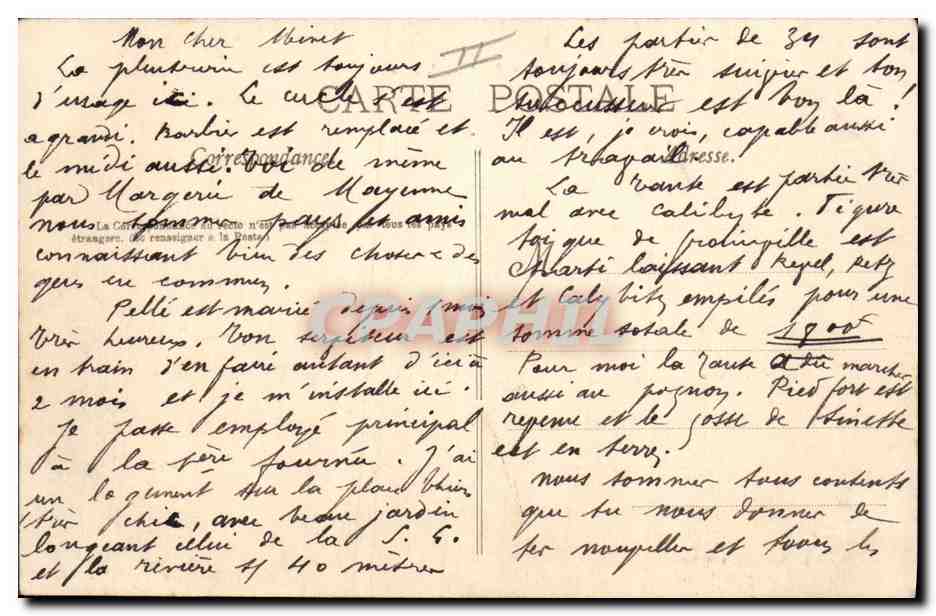 Mon cher Minet
La plusieurie est toujours
d'usage ici. Le cercle s'est
agrandi. Barbier est remplacé et
le midi aussi. Voi de même
par Margerie de Mayenne
nous sommes pays et amis
connaissant bien des choses et des
gens en commun.
Pellé est marié depuis 1 mois
très heureux. Ton serviteur est
en train d'en faire autant d'ici à
2 mois et je m'installe ici.
Je passe employé principal
à la 1ère fournée. J'ai
un logement sur la place
très chic, avec beau jardin
longeant celui de la S. G.
et la rivière s/ 40 mètres
CARTE POSTALE
Correspondance
Adresse.
La Correspondance au recto n'est pas acceptée par tous les pays
étrangers. (Se renseigner à la Poste)
CPAPHIL
II
Les parties de 31 sont
toujours très suivies et ton
successeur est bon là!
Il est, je crois, capable aussi
au travail.
La vente est partie très
mal avec
de est
Marti laissant Revel, Retz
et empilés pour une
somme totale de 1800f
Pour moi la a dû marcher
aussi au pognon. Piedfort est
revenu et le gosse de Sinette
est en terre.
nous sommes tous contents
que tu nous donnes de
tes nouvelles et tous les